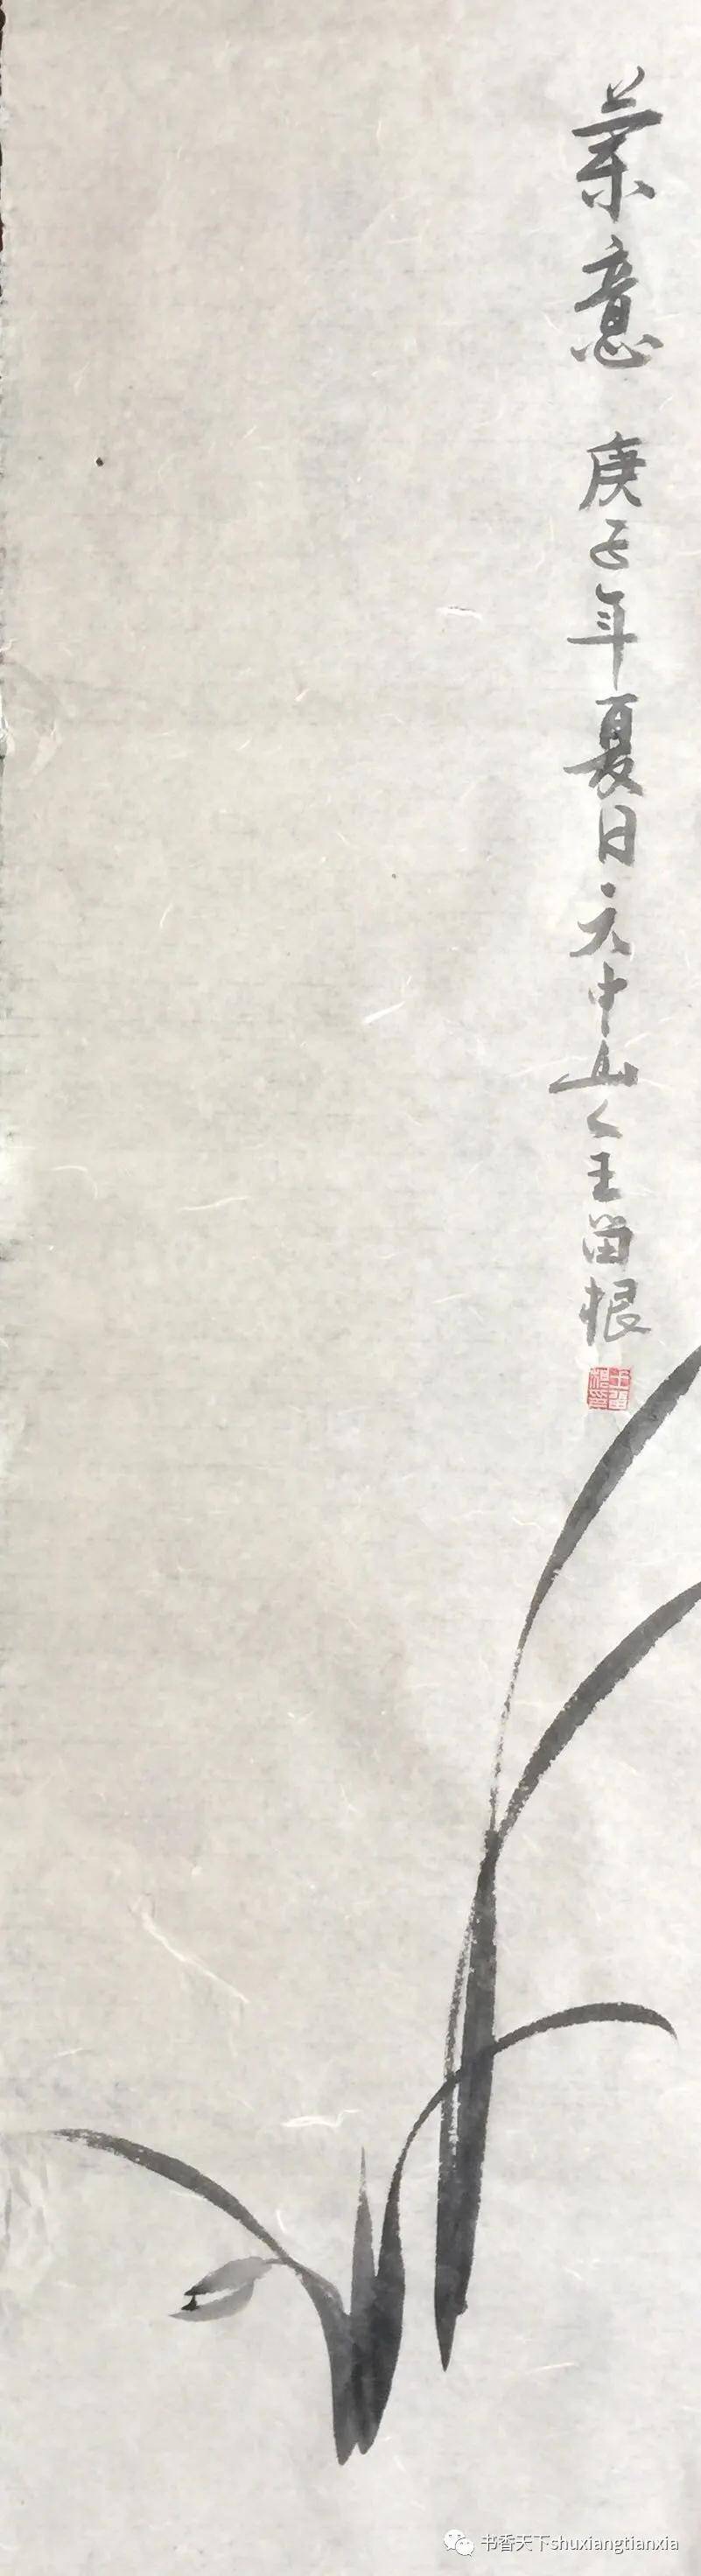 兰意 庚子年夏日 天中山人王留根
王留根印
书香天下shuxiangtianxia